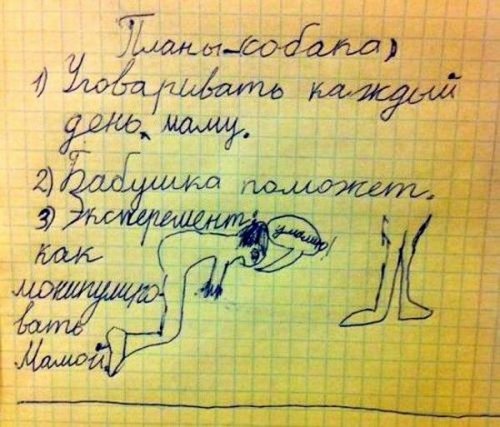 Планы-(собака)
1) Уговаривать каждый
день маму.
2) Бабушка поможет.
3) Эксперемент:
умоляю!
как
монипулиро-
вать
Мамой.